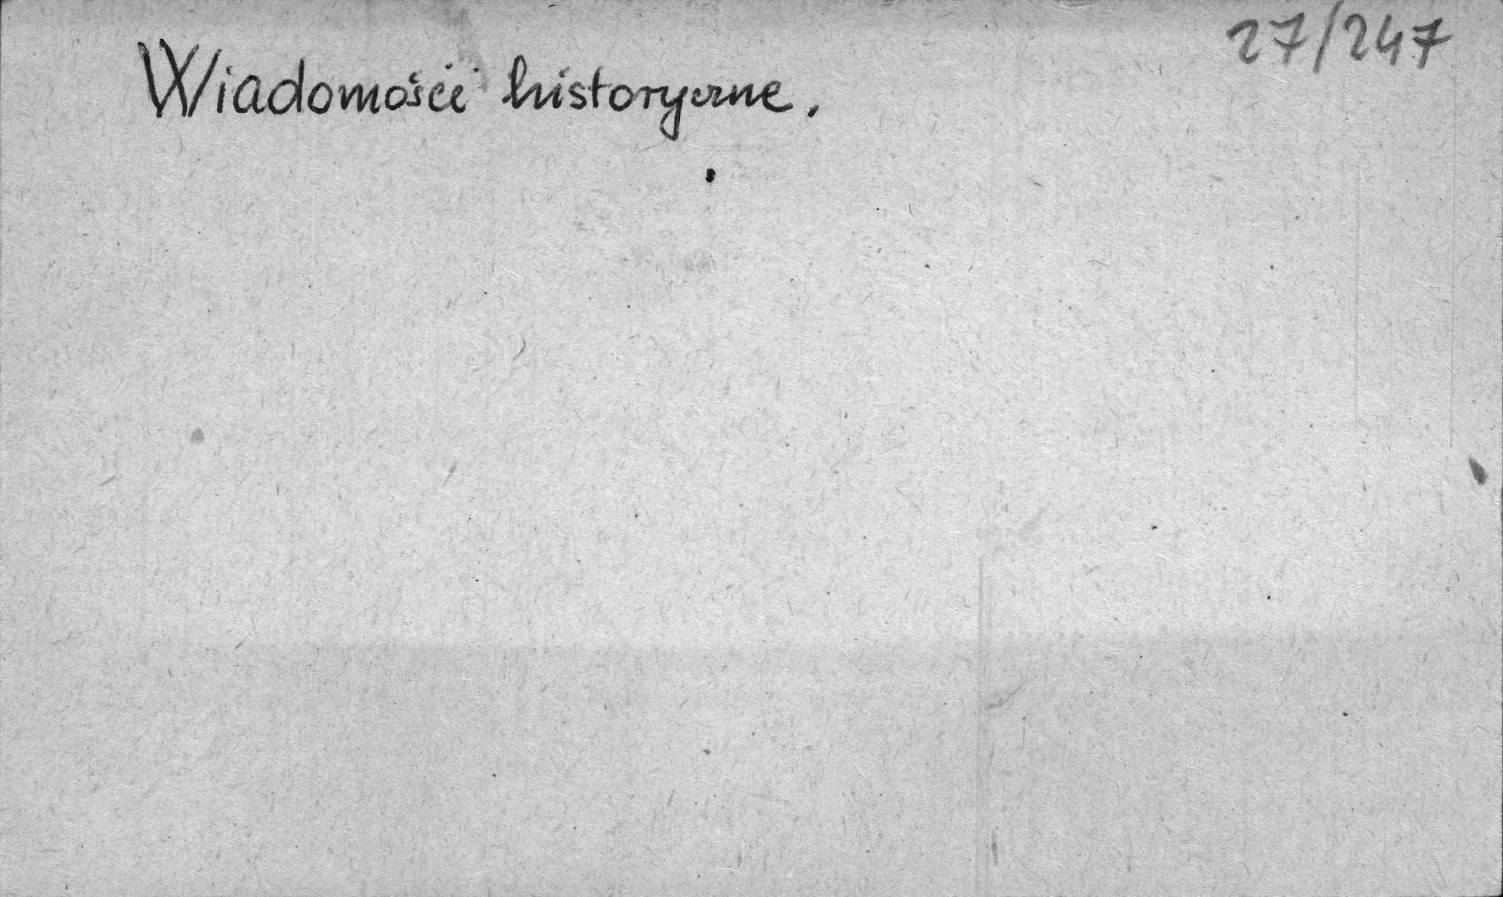 27/247
Wiadomości historyczne.